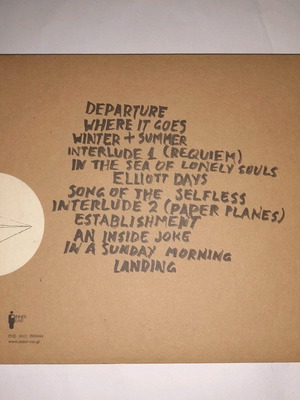 DEPARTURE
WHERE IT GOES
WINTER + SUMMER
INTERLUDE 1 (REQUIEM)
IN THE SEA OF LONELY SOULS
ELLIOTT DAYS
SONG OF THE SELFLESS
INTERLUDE 2 (PAPER PLANES)
ESTABLISHMENT
AN INSIDE JOKE
IN A SUNDAY MORNING
LANDING